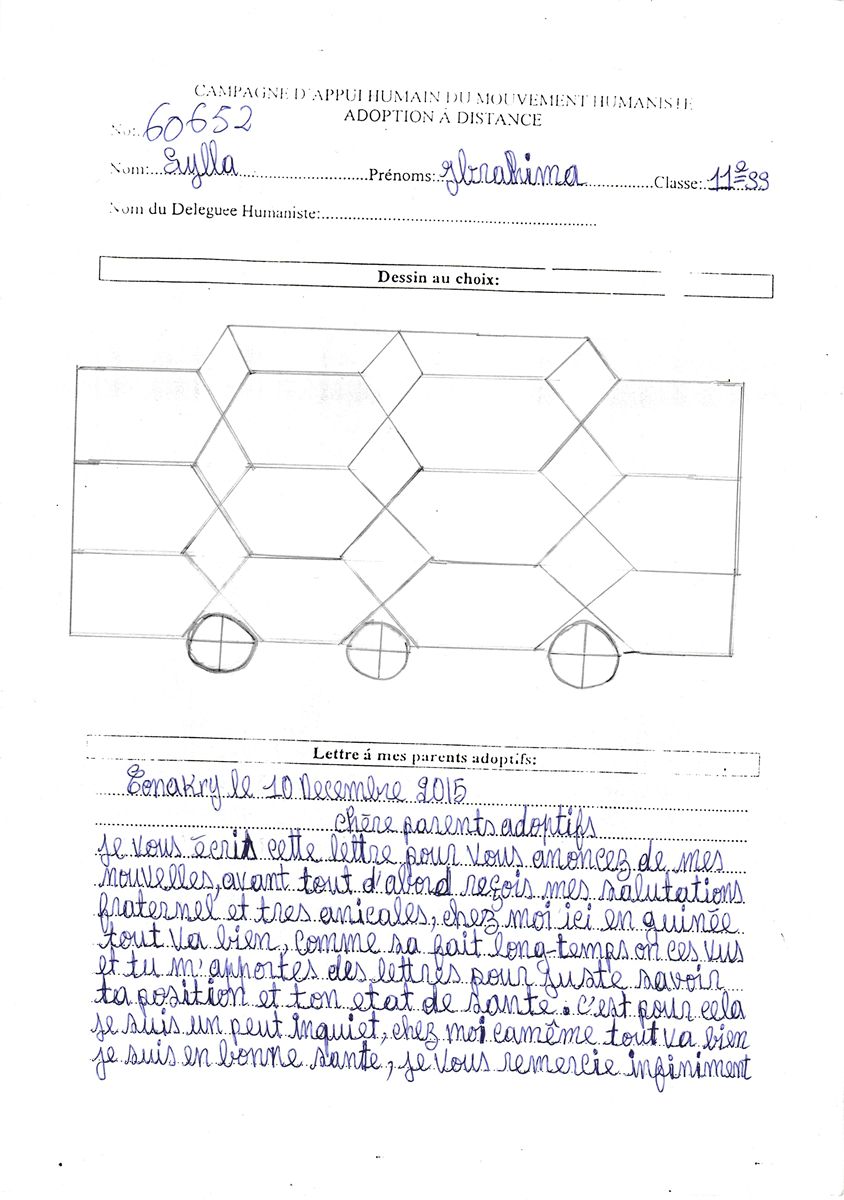 CAMPAGNE D'APPUI HUMAIN DU MOUVEMENT HUMANISTE
ADOPTION Á DISTANCE
No:. 60652
Nom:....Sylla..............................Prénoms: Ibrahima...............Classe:.11e=99
Nom du Deleguee Humaniste:................................................................
Dessin au choix:
Lettre á mes parents adoptifs:
Conakry le 10 Decembre 2015
chère parents adoptifs
je vous écrit cette lettre pour vous anoncez de mes
nouvelles, avant tout d'abord reçois mes salutations
fraternel et tres amicales, chez moi ici en guinée
tout va bien, comme sa fait long-temps on ces vus
et tu m'apportes des lettres pour juste savoir
ta position et ton etat de sante. c'est pour cela
je suis un peut inquiet, chez moi camême tout va bien
je suis en bonne sante, je vous remercie infiniment